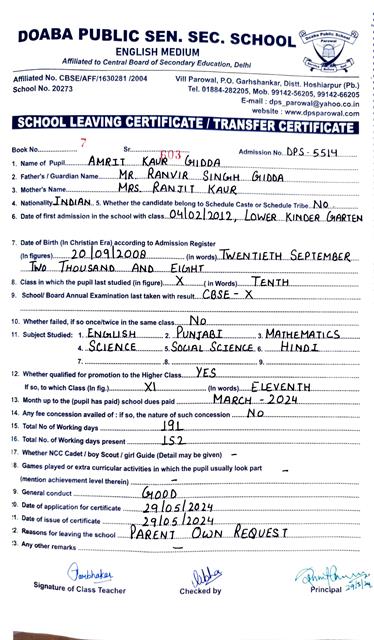 DOABA PUBLIC SEN. SEC. SCHOOL
ENGLISH MEDIUM
Affiliated to Central Board of Secondary Education, Delhi
Affiliated No. CBSE/AFF/1630281 /2004
School No. 20273
Vill Parowal, P.O. Garhshankar, Distt. Hoshiarpur (Pb.)
Tel. 01884-282205, Mob. 99142-56205, 99142-66205
E-mail : dps_parowal@yahoo.co.in
website : www.dpsparowal.com
SCHOOL LEAVING CERTIFICATE / TRANSFER CERTIFICATE
Book No. 7 Sr. 603 Admission No. DPS-5514
1. Name of Pupil AMRIT KAUR GIDDA
2. Father's / Guardian Name MR. RANVIR SINGH GIDDA
3. Mother's Name MRS. RANJIT KAUR
4. Nationality INDIAN 5. Whether the candidate belong to Schedule Caste or Schedule Tribe NO
6. Date of first admission in the school with class 04/02/2012, LOWER KINDER GARTEN
7. Date of Birth (In Christian Era) according to Admission Register
(In figures) 20/09/2008 (in words) TWENTIETH SEPTEMBER
TWO THOUSAND AND EIGHT
8. Class in which the pupil last studied (in figure) X ( in Words) TENTH
9. School/ Board Annual Examination last taken with result CBSE - X
10. Whether failed, if so once/twice in the same class NO
11. Subject Studied: 1. ENGLISH 2. PUNJABI 3. MATHEMATICS
4. SCIENCE 5. SOCIAL SCIENCE 6. HINDI
7. 8. 9.
12. Whether qualified for promotion to the Higher Class YES
If so, to which Class (In fig.) XI (In words) ELEVENTH
13. Month up to the (pupil has paid) school dues paid MARCH - 2024
14. Any fee concession availed of : if so, the nature of such concession NO
15. Total No. of Working days 191
16. Total No. of Working days present 152
17. Whether NCC Cadet / boy Scout / girl Guide (Detail may be given) -
18. Games played or extra curricular activities in which the pupil usually look part
(mention achievement level therein) -
9. General conduct GOOD
0. Date of application for certificate 29/05/2024
1. Date of issue of certificate 29/05/2024
2. Reasons for leaving the school PARENT OWN REQUEST
3. Any other remarks -
Signature of Class Teacher Checked by Principal